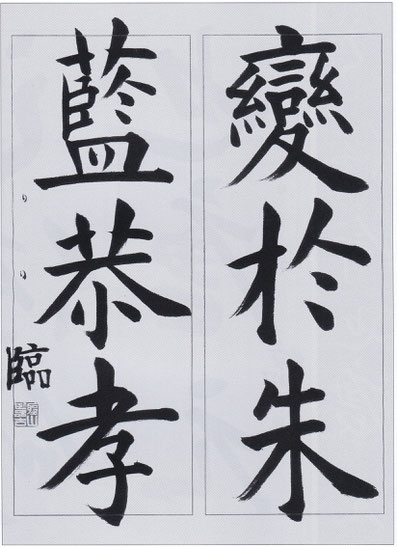 變於朱
藍恭孝
臨